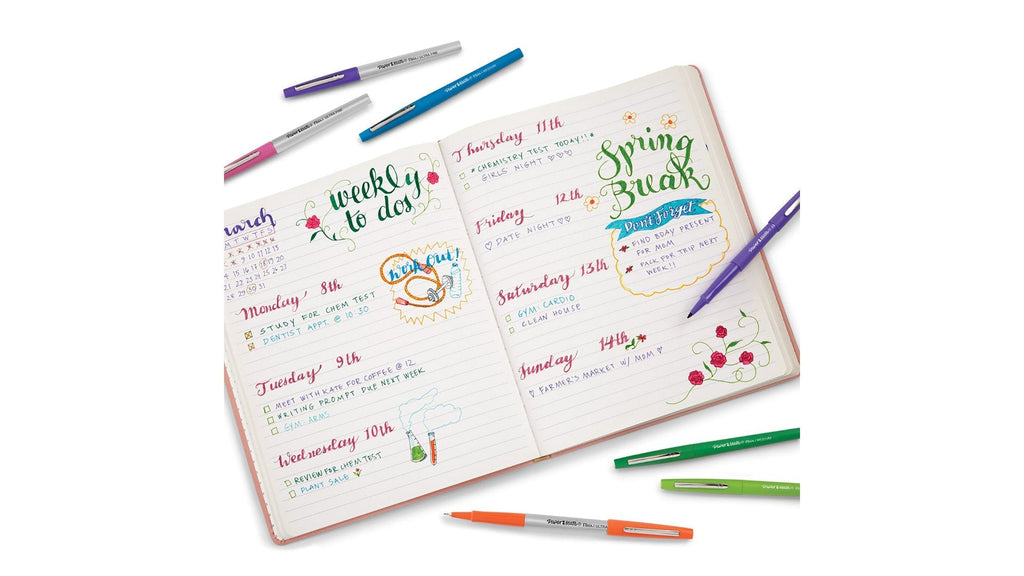 weekly
to dos
M T W T F S
Monday 8th
STUDY FOR CHEM TEST
DENTIST APPT. @ 10:30
Work Out!
Tuesday 9th
MEET WITH KATE FOR COFFEE @ 12
WRITING PROMPT DUE NEXT WEEK
GYM: ARMS
Wednesday 10th
REVIEW FOR CHEM TEST
PLANT SALE
Thursday 11th
*CHEMISTRY TEST TODAY!!*
GIRLS NIGHT ♡♡♡
Friday 12th
♡ DATE NIGHT ♡♡
Saturday 13th
GYM: CARDIO
CLEAN HOUSE
Sunday 14th
♡ FARMER'S MARKET W/ MOM ♡
Spring
Break
Don't Forget
FIND BDAY PRESENT
FOR MOM
PACK FOR TRIP NEXT
WEEK!!
Paper Mate
Paper Mate
Paper Mate
Paper Mate
Paper Mate
Paper Mate